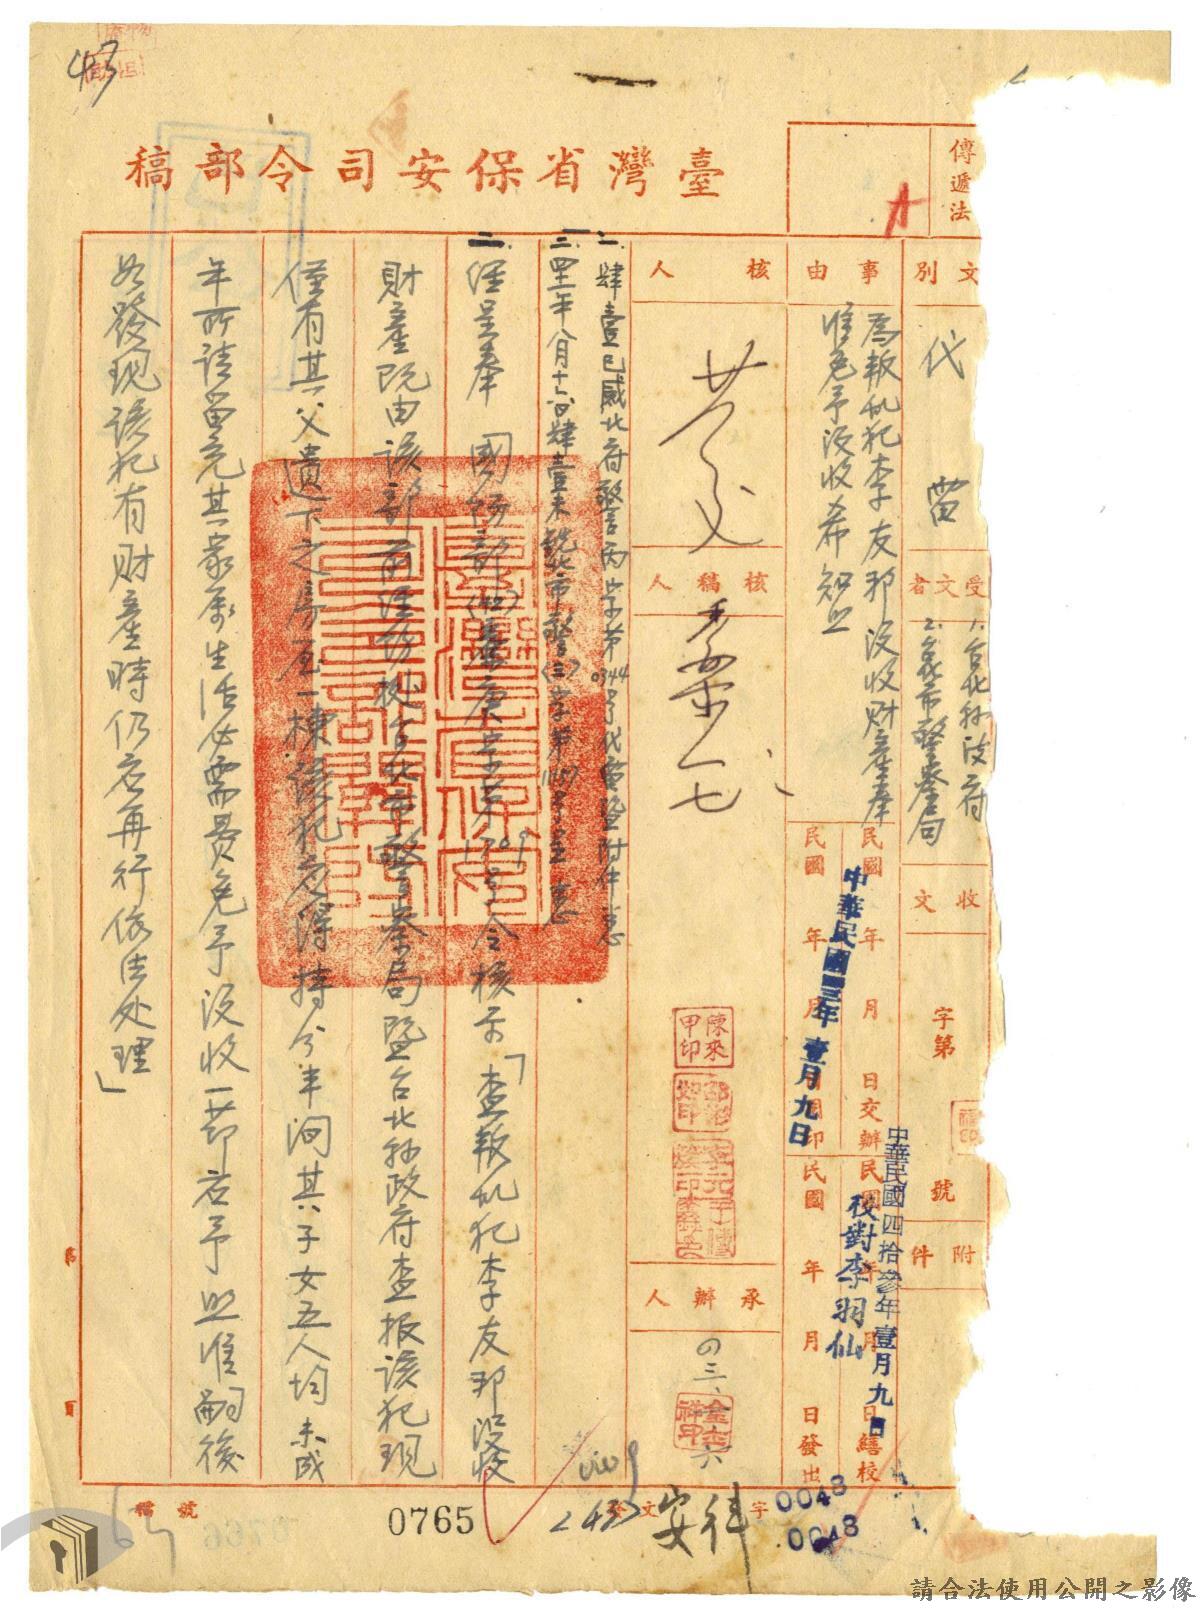 臺灣省保安司令部稿
傳遞法
文別
代電
事由
為叛亂犯李友邦沒收財產奉
准免予沒收希知照
受文者
1.台北縣政府
2.台北市警察局
收文
字第
號
附件
民國 年 月 日交辦
民國 年 月 日繕校
民國 年 月 日封印
民國 年 月 日發出
中華民國四三年壹月九日
中華民國四拾參年壹月九日
校對李羽仙
核人
核稿人
承辦人
陳來甲印
一.肆壹巳威北府警丙字第0344号代電暨附件悉
二.四一年八月十六日肆壹未銳北市警(三)字第1157号呈悉
三.經呈奉 國防部(42)廉庚字第1709号令核示「查叛亂犯李友邦沒收
財產既由該部前經訪據台北市警察局暨台北縣政府查报該犯現
僅有其父遺下之房屋一棟該犯应得持分半洞其子女五人均未成
年所請留充其家屬生活必需費免予沒收一節应予照准嗣後
如發現該犯有財產時仍应再行依法处理」
第 頁
檔號
發文 字
安律
0048
0048
2437
0765
0766
43
請合法使用公開之影像